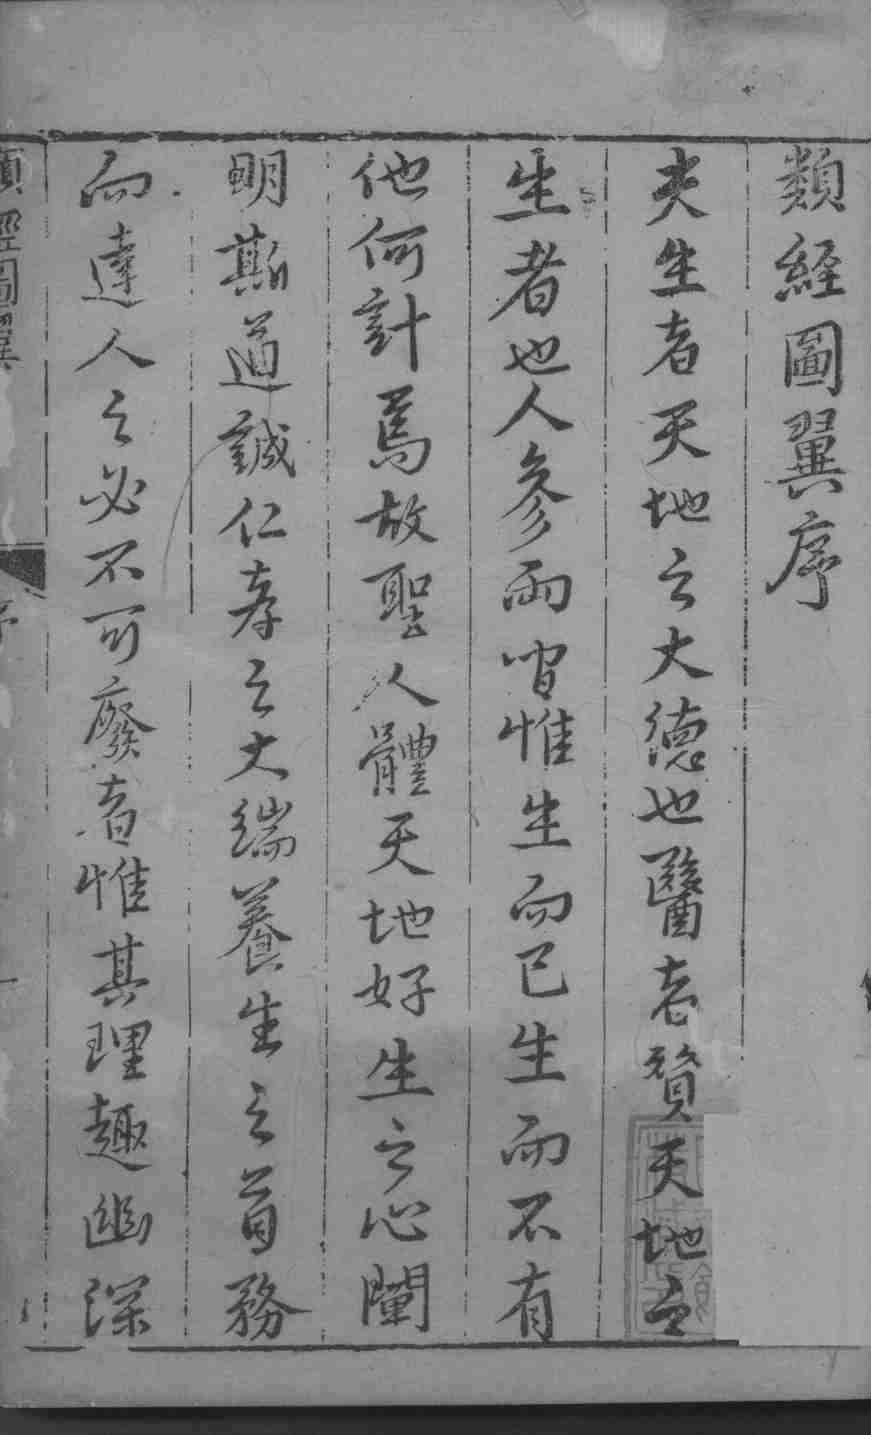 類經圖翼序
夫生者天地之大德也醫者贊天地之
生者也人參兩間惟生而已生而不有
他何計焉故聖人體天地好生之心闡
明斯道誠仁孝之大端養生之首務
而達人之必不可廢者惟其理趣幽深
類經圖翼
序
一